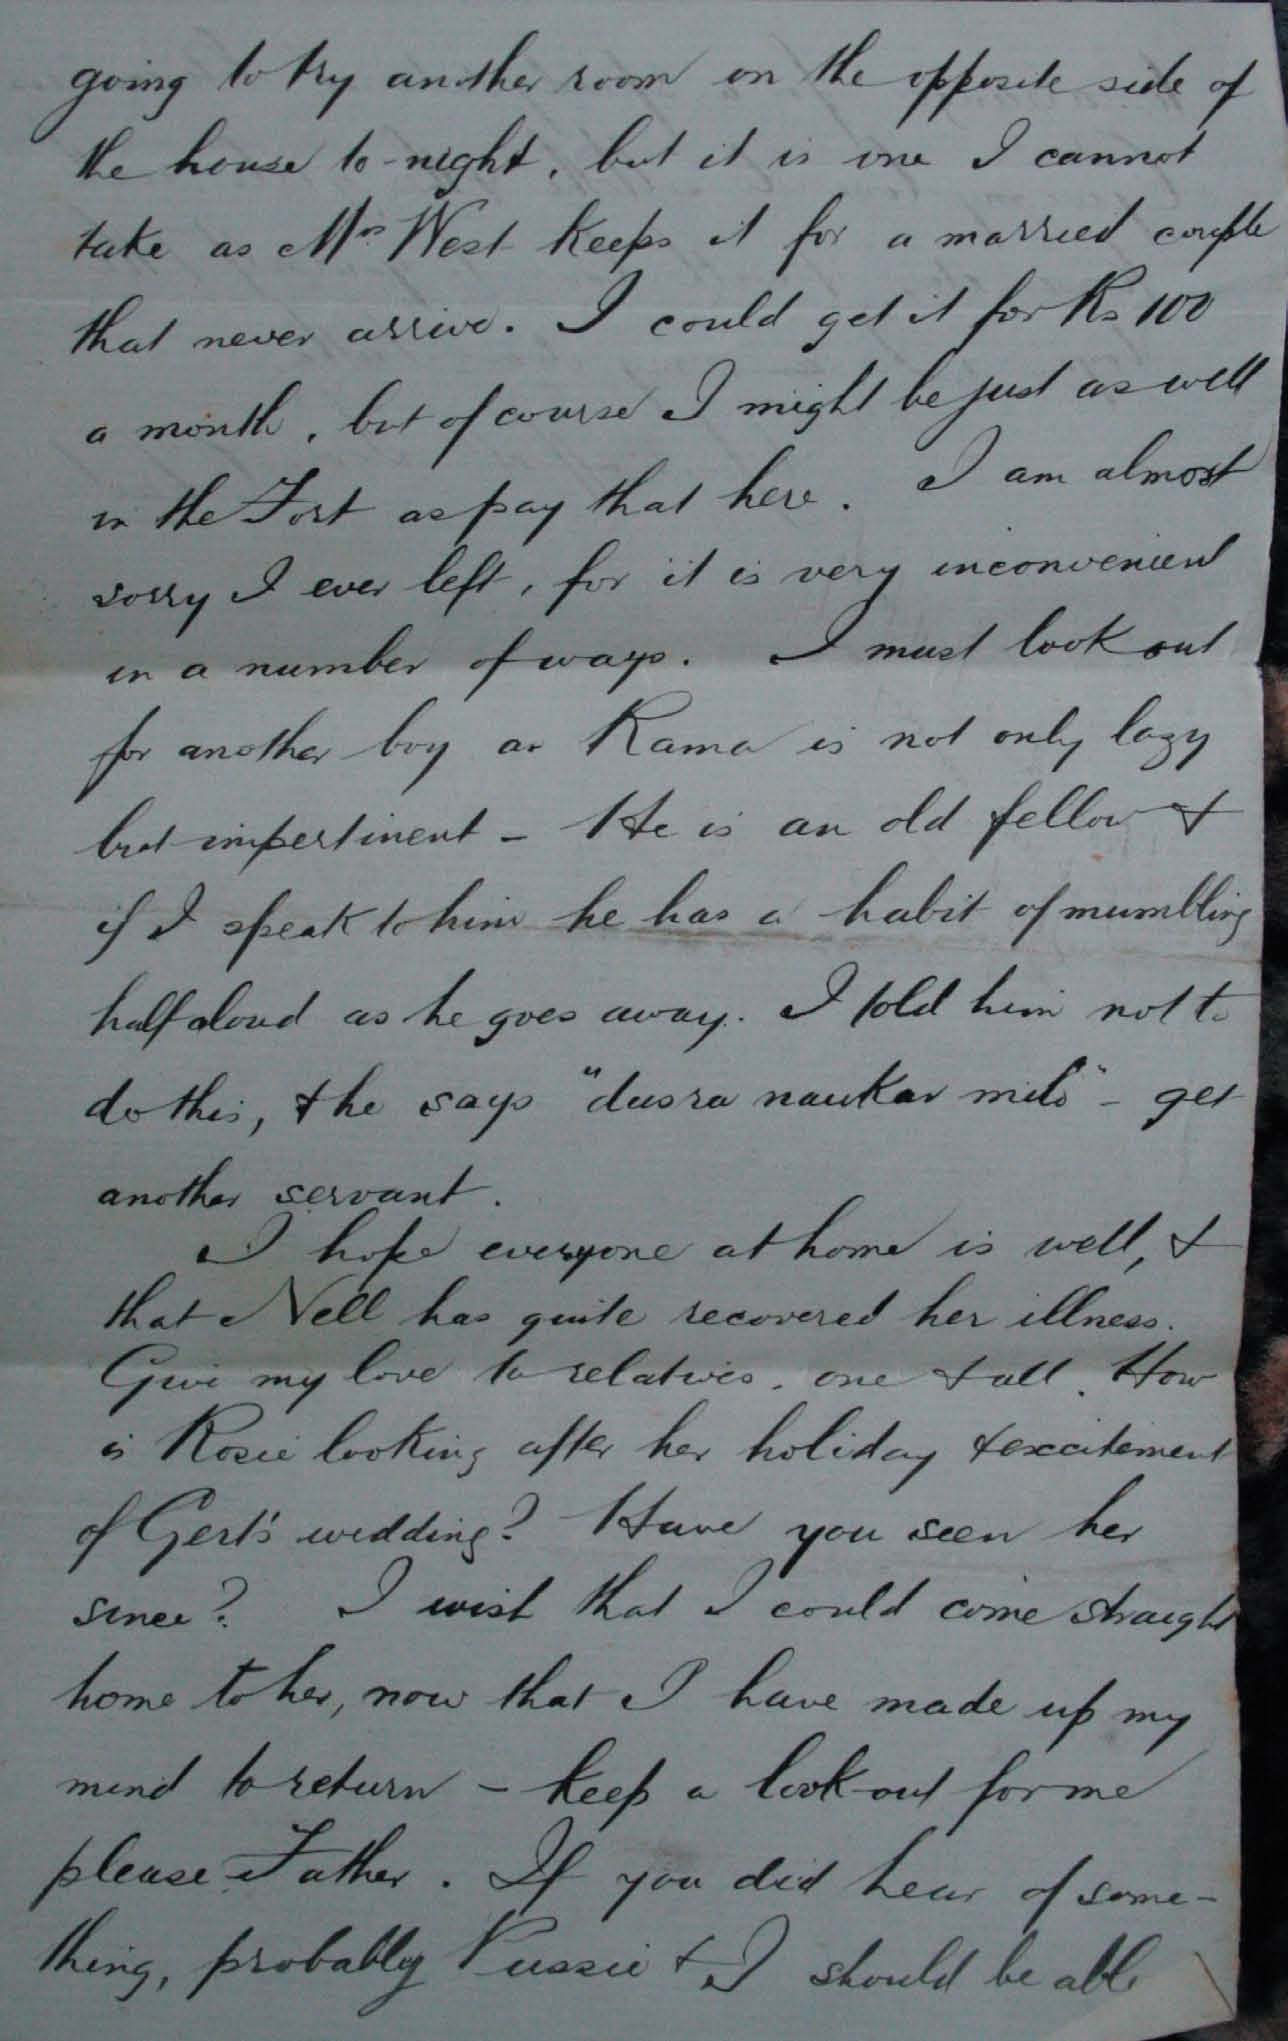 going to try another room on the opposite side of
the house to-night, but it is one I cannot
take as Mrs West keeps it for a married couple
that never arrive. I could get it for Rs 100
a month, but of course I might be just as well
in the Fort as pay that here. I am almost
sorry I ever left, for it is very inconvenient
in a number of ways. I must look out
for another boy as Rama is not only lazy
but impertinent - He is an old fellow &
if I speak to him he has a habit of mumbling
half aloud as he goes away. I told him not to
do this, & he says "dusra naukar milo" - get
another servant.
I hope everyone at home is well, &
that Nell has quite recovered her illness.
Give my love to relatives, one & all. How
is Rosie looking after her holiday & excitement
of Gert's wedding? Have you seen her
since? I wish that I could come straight
home to her, now that I have made up my
mind to return - keep a look-out for me
please Father. If you did hear of some-
thing, probably Pussie & I should be able